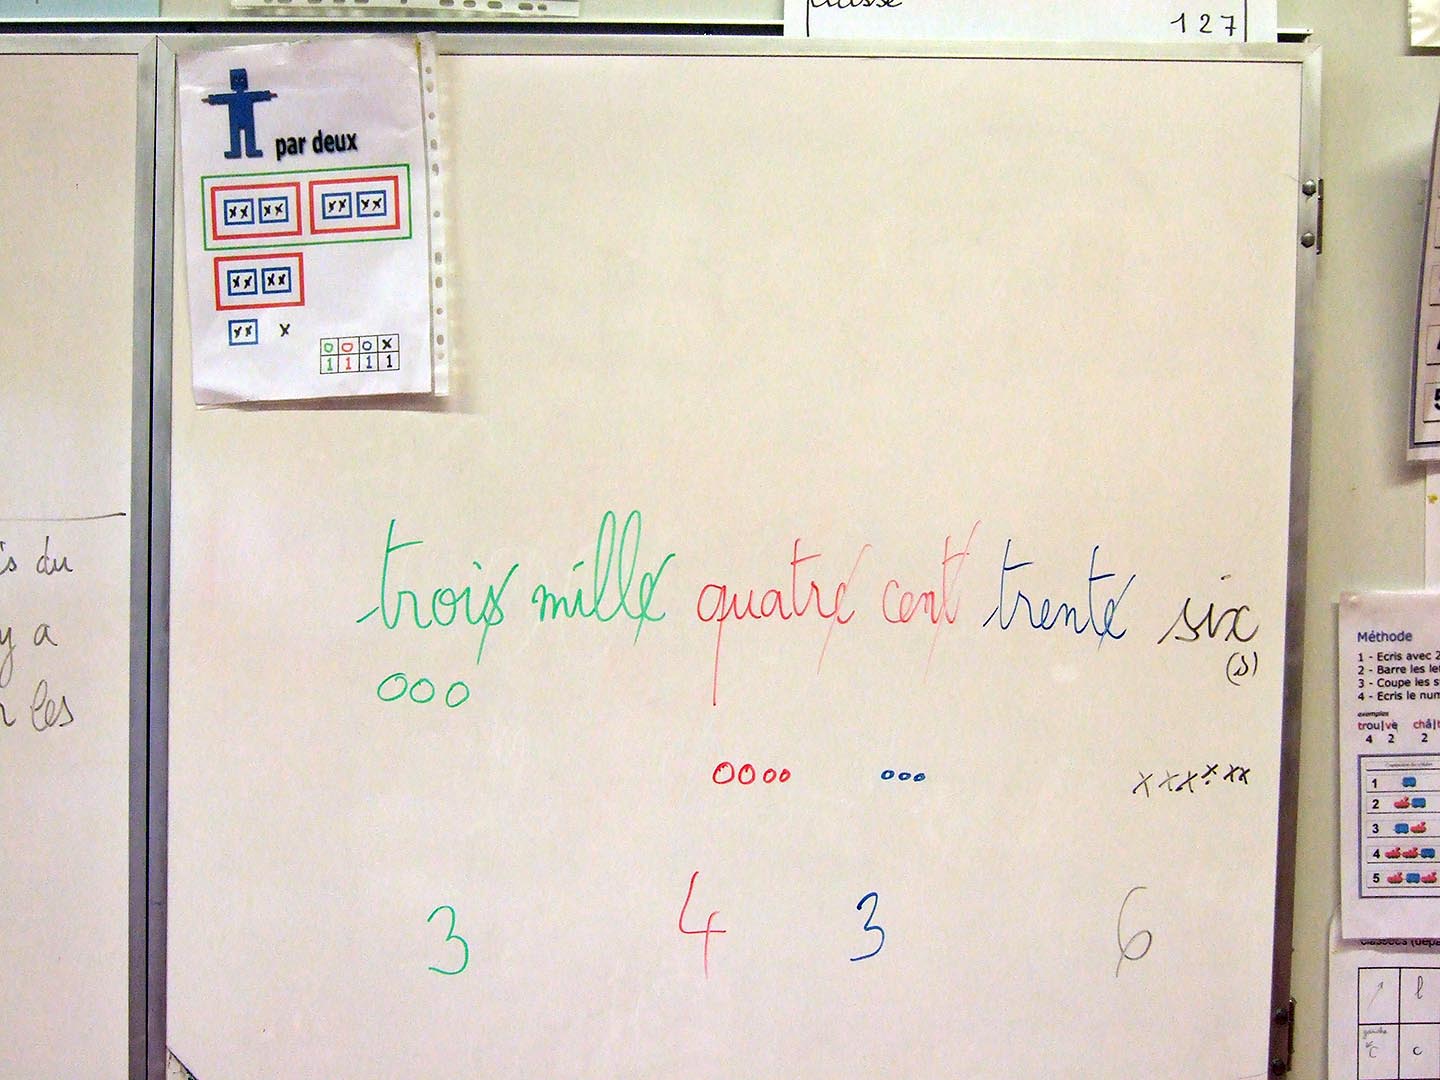 classe
1 2 7
par deux
xx xx xx xx
xx xx
xx x
O O O x
1 1 1 1
is du
y a
les
trois mille quatre cent trente six
(s)
ooo
oooo ooo xxxxxx
3 4 3 6
Méthode
1 - Ecris avec 2
2 - Barre les le
3 - Coupe les s
4 - Ecris le num
exemples
trou|ve châ|t
4 2 2
1
2
3
4
5
l
c